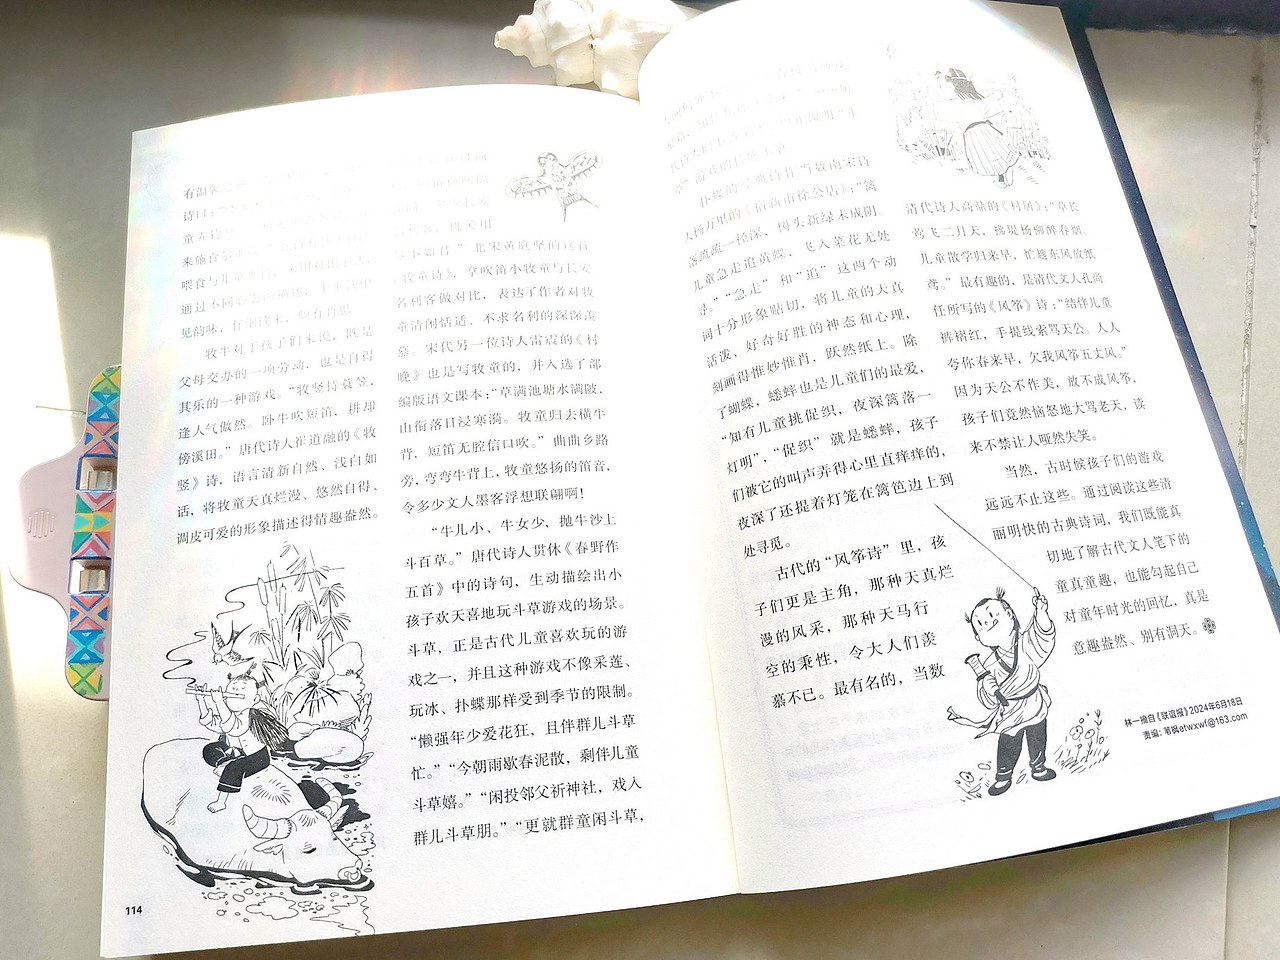 有温
诗曰：
童弄
来施食
喂食与儿童
通过不同
见韵味，仔细读来，颇有
牧牛对于孩子们来说，既是
父母交办的一项劳动，也是自得
其乐的一种游戏。“牧竖持蓑笠，
逢人气傲然。卧牛吹短笛，耕却
傍溪田。”唐代诗人崔道融的《牧
竖》诗，语言清新自然、浅白如
话，将牧童天真烂漫、悠然自得、
调皮可爱的形象描述得情趣盎然。
长安
机关用
尽不如君”北宋黄庭坚的这首
《牧童诗》，拿吹笛小牧童与长安
名利客做对比，表达了作者对牧
童清闲恬适、不求名利的深深羡
慕。宋代另一位诗人雷震的《村
晚》也是写牧童的，并入选了部
编版语文课本：“草满池塘水满陂，
山衔落日浸寒漪。牧童归去横牛
背，短笛无腔信口吹。”曲曲乡路
旁，弯弯牛背上，牧童悠扬的笛音，
令多少文人墨客浮想联翩啊！
“牛儿小、牛女少，抛牛沙上
斗百草。”唐代诗人贯休《春野作
五首》中的诗句，生动描绘出小
孩子欢天喜地玩斗草游戏的场景。
斗草，正是古代儿童喜欢玩的游
戏之一，并且这种游戏不像采莲、
玩冰、扑蝶那样受到季节的限制。
“懒强年少爱花狂，且伴群儿斗草
忙。”“今朝雨歇春泥散，剩伴儿童
斗草嬉。”“闲投邻父祈神社，戏入
群儿斗草朋。”“更就群童闲斗草，
114
扑蝶的经典诗作当数南宋诗
人杨万里的《宿新市徐公店》：“篱
落疏疏一径深，树头新绿未成阴。
儿童急走追黄蝶，飞入菜花无处
寻。”“急走”和“追”这两个动
词十分形象贴切，将儿童的天真
活泼、好奇好胜的神态和心理，
刻画得惟妙惟肖，跃然纸上。除
了蝴蝶，蟋蟀也是儿童们的最爱，
“知有儿童挑促织，夜深篱落一
灯明”，“促织”就是蟋蟀，孩子
们被它的叫声弄得心里直痒痒的，
夜深了还提着灯笼在篱笆边上到
处寻觅。
古代的“风筝诗”里，孩
子们更是主角，那种天真烂
漫的风采，那种天马行
空的秉性，令大人们羡
慕不已。最有名的，当数
清代诗人高鼎的《村居》：“草长
莺飞二月天，拂堤杨柳醉春烟。
儿童散学归来早，忙趁东风放纸
鸢。”最有趣的，是清代文人孔尚
任所写的《风筝》诗：“结伴儿童
裤褶红，手提线索骂天公。人人
夸你春来早，欠我风筝五丈风。”
因为天公不作美，放不成风筝，
孩子们竟然恼怒地大骂老天，读
来不禁让人哑然失笑。
当然，古时候孩子们的游戏
远远不止这些。通过阅读这些清
丽明快的古典诗词，我们既能真
切地了解古代文人笔下的
童真童趣，也能勾起自己
对童年时光的回忆，真是
意趣盎然、别有洞天。
林一摘自《联谊报》2024年6月18日
责编：苇枫etwxwf@163.com